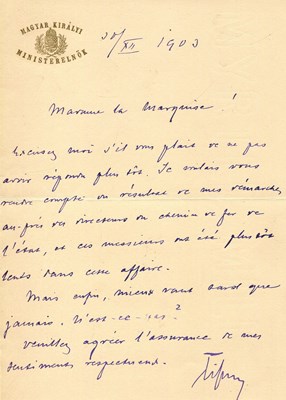 MAGYAR KIRÁLYI
MINISTERELNÖK
30/XII 1903
Madame la Marquise!
Excusez moi s'il vous plait de ne pas
avoir répondu plus tôt. Je voulais vous
rendre compte du résultat de mes démarches
au-près des directeurs du chemin de fer de
l'état, et ces messieurs ont été plus tôt
lents dans cette affaire.
Mais enfin, mieux vaut tard que
jamais. N'est-ce-pas?
Veuillez agréer l'assurance de mes
sentiments respectueux.
Tisza